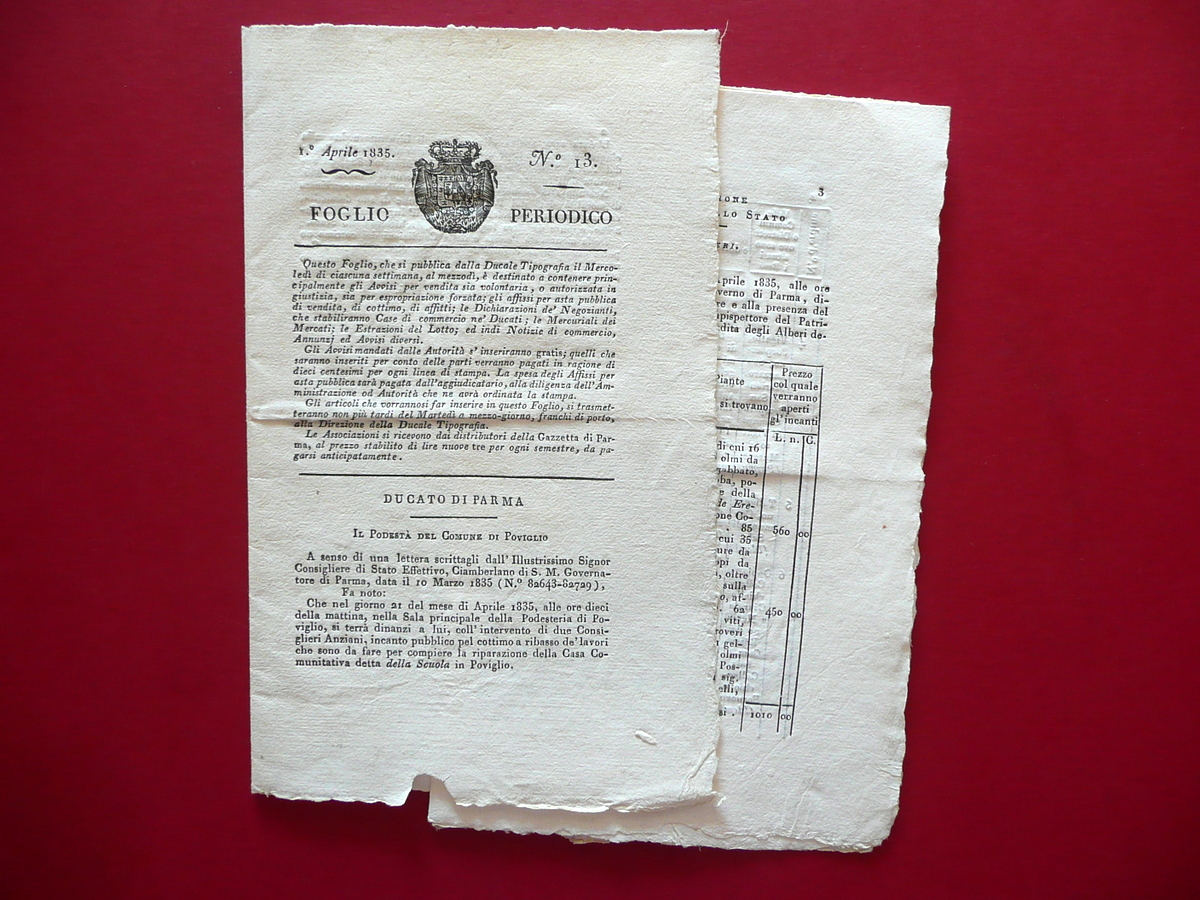 1.º Aprile 1835.
N.º 13.
FOGLIO PERIODICO
Questo Foglio, che si pubblica dalla Ducale Tipografia il Merco-
ledì di ciascuna settimana, al mezzodì, è destinato a contenere prin-
cipalmente gli Avvisi per vendita sia volontaria, o autorizzata in
giustizia, sia per espropriazione forzata; gli affissi per asta pubblica
di vendita, di cottimo, di affitti; le Dichiarazioni de' Negozianti,
che stabiliranno Case di commercio ne' Ducati; le Mercuriali dei
Mercati; le Estrazioni del Lotto; ed indi Notizie di commercio,
Annunzj ed Avvisi diversi.
Gli Avvisi mandati dalle Autorità s' inseriranno gratis; quelli che
saranno inseriti per conto delle parti verranno pagati in ragione di
dieci centesimi per ogni linea di stampa. La spesa degli Affissi per
asta pubblica sarà pagata dall'aggiudicatario, alla diligenza dell'Am-
ministrazione od Autorità che ne avrà ordinata la stampa.
Gli articoli che vorrannosi far inserire in questo Foglio, si trasmet-
teranno non più tardi del Martedì a mezzo-giorno, franchi di porto,
alla Direzione della Ducale Tipografia.
Le Associazioni si ricevono dai distributori della Gazzetta di Par-
ma, al prezzo stabilito di lire nuove tre per ogni semestre, da pa-
garsi anticipatamente.
DUCATO DI PARMA
IL PODESTÀ DEL COMUNE DI POVIGLIO
A senso di una lettera scrittagli dall' Illustrissimo Signor
Consigliere di Stato Effettivo, Ciamberlano di S. M. Governa-
tore di Parma, data il 10 Marzo 1835 (N.º 82643-82729),
Fa noto:
Che nel giorno 21 del mese di Aprile 1835, alle ore dieci
della mattina, nella Sala principale della Podesteria di Po-
viglio, si terrà dinanzi a lui, coll' intervento di due Consi-
glieri Anziani, incanto pubblico pel cottimo a ribasso de' lavori
che sono da fare per compiere la riparazione della Casa Co-
munitativa detta della Scuola in Poviglio.
3
IONE
LO STATO
RI.
Aprile 1835, alle ore
verno di Parma, di-
re e alla presenza del
spettore del Patri-
dita degli Alberi de-
Piante
si trovano
Prezzo
col quale
verranno
aperti
gl'incanti
L. n. C.
di cui 16
olmi da
gabbato,
ba, po-
e della
le Ere-
one Co-
. 85 560 00
cui 35
ure da
opi da
, oltre
sulla
o, af-
. 62 450 00
viti,
roveri
gel-
olmi
Pos-
sig.
elli,
si . 1010 00